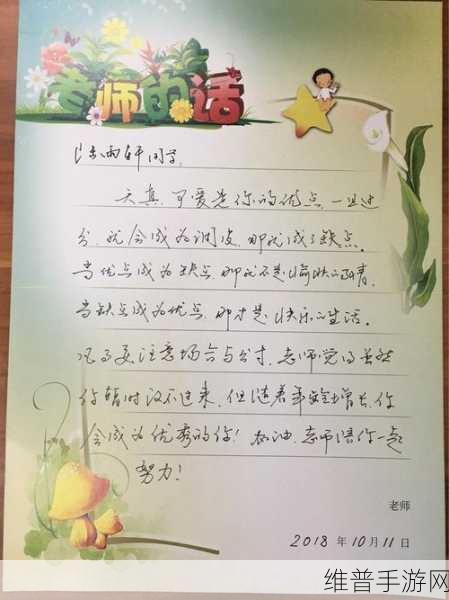 老师的话
陈雨轩同学，
天真、可爱是你的优点，一旦过
分，就会成为调皮，那就成了缺点。
当优点成为缺点，那就不是愉快的事情。
当缺点成为优点，那才是快乐的生活。
凡事要注意场合与分寸，老师觉得虽然
你暂时改不过来，但随着年龄增长，你
会成为优秀的你！加油，老师陪你一起
努力！
老师
2018 年 10 月 11 日
维普手游网